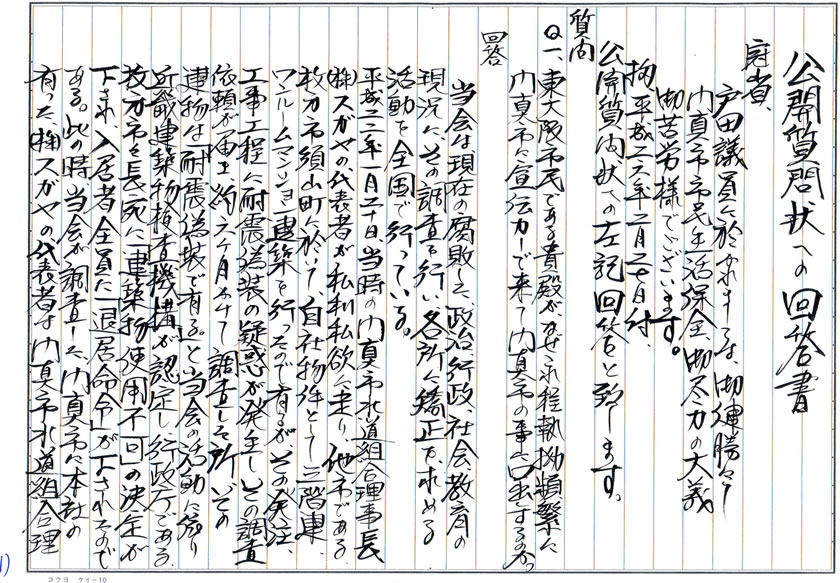 公開質問状への回答書
冠省、
戸田議員に於かれましては、御健勝にて
門真市市民生活保全、御尽力の大義
御苦労様でございます。
拘、平成二六年二月二十日付
公開質問状への左記回答をと致します。
質問
Q一、東大阪市民である貴殿が、なぜこれ程執拗頻繁に
門真市に宣伝カーで来て門真市の事に口出するのか
回答
当会は現在の腐敗した政治、行政、社会、教育の
現況にその調査を行い各所に矯正を求める
活動を全国で行っている。
平成二二年一月二十日当時の門真市水道組合理事長
(株)スガヤの代表者が私利私欲に走り、他市である
枚方市須山町に於いて自社物件として三階建、
ワンルームマンション建築を行ったので有るが、その発注、
工事工程に耐震偽装の疑惑が発生し、その調査
依頼が届き約六ヶ月かけて調査した所、「その
建物は「耐震偽装で有る。」と当会の活動に依り
近畿建築物検査機構が認定し行政庁である、
枚方市々長宛に「建築物使用不可」の決定が
下され、入居者全員に「退居命令」が下されたので
ある。此の時、当会が調査した、門真市に本社の
有った、(株)スガヤの代表者は門真市水道組合理
1)
コクヨ ケイー10